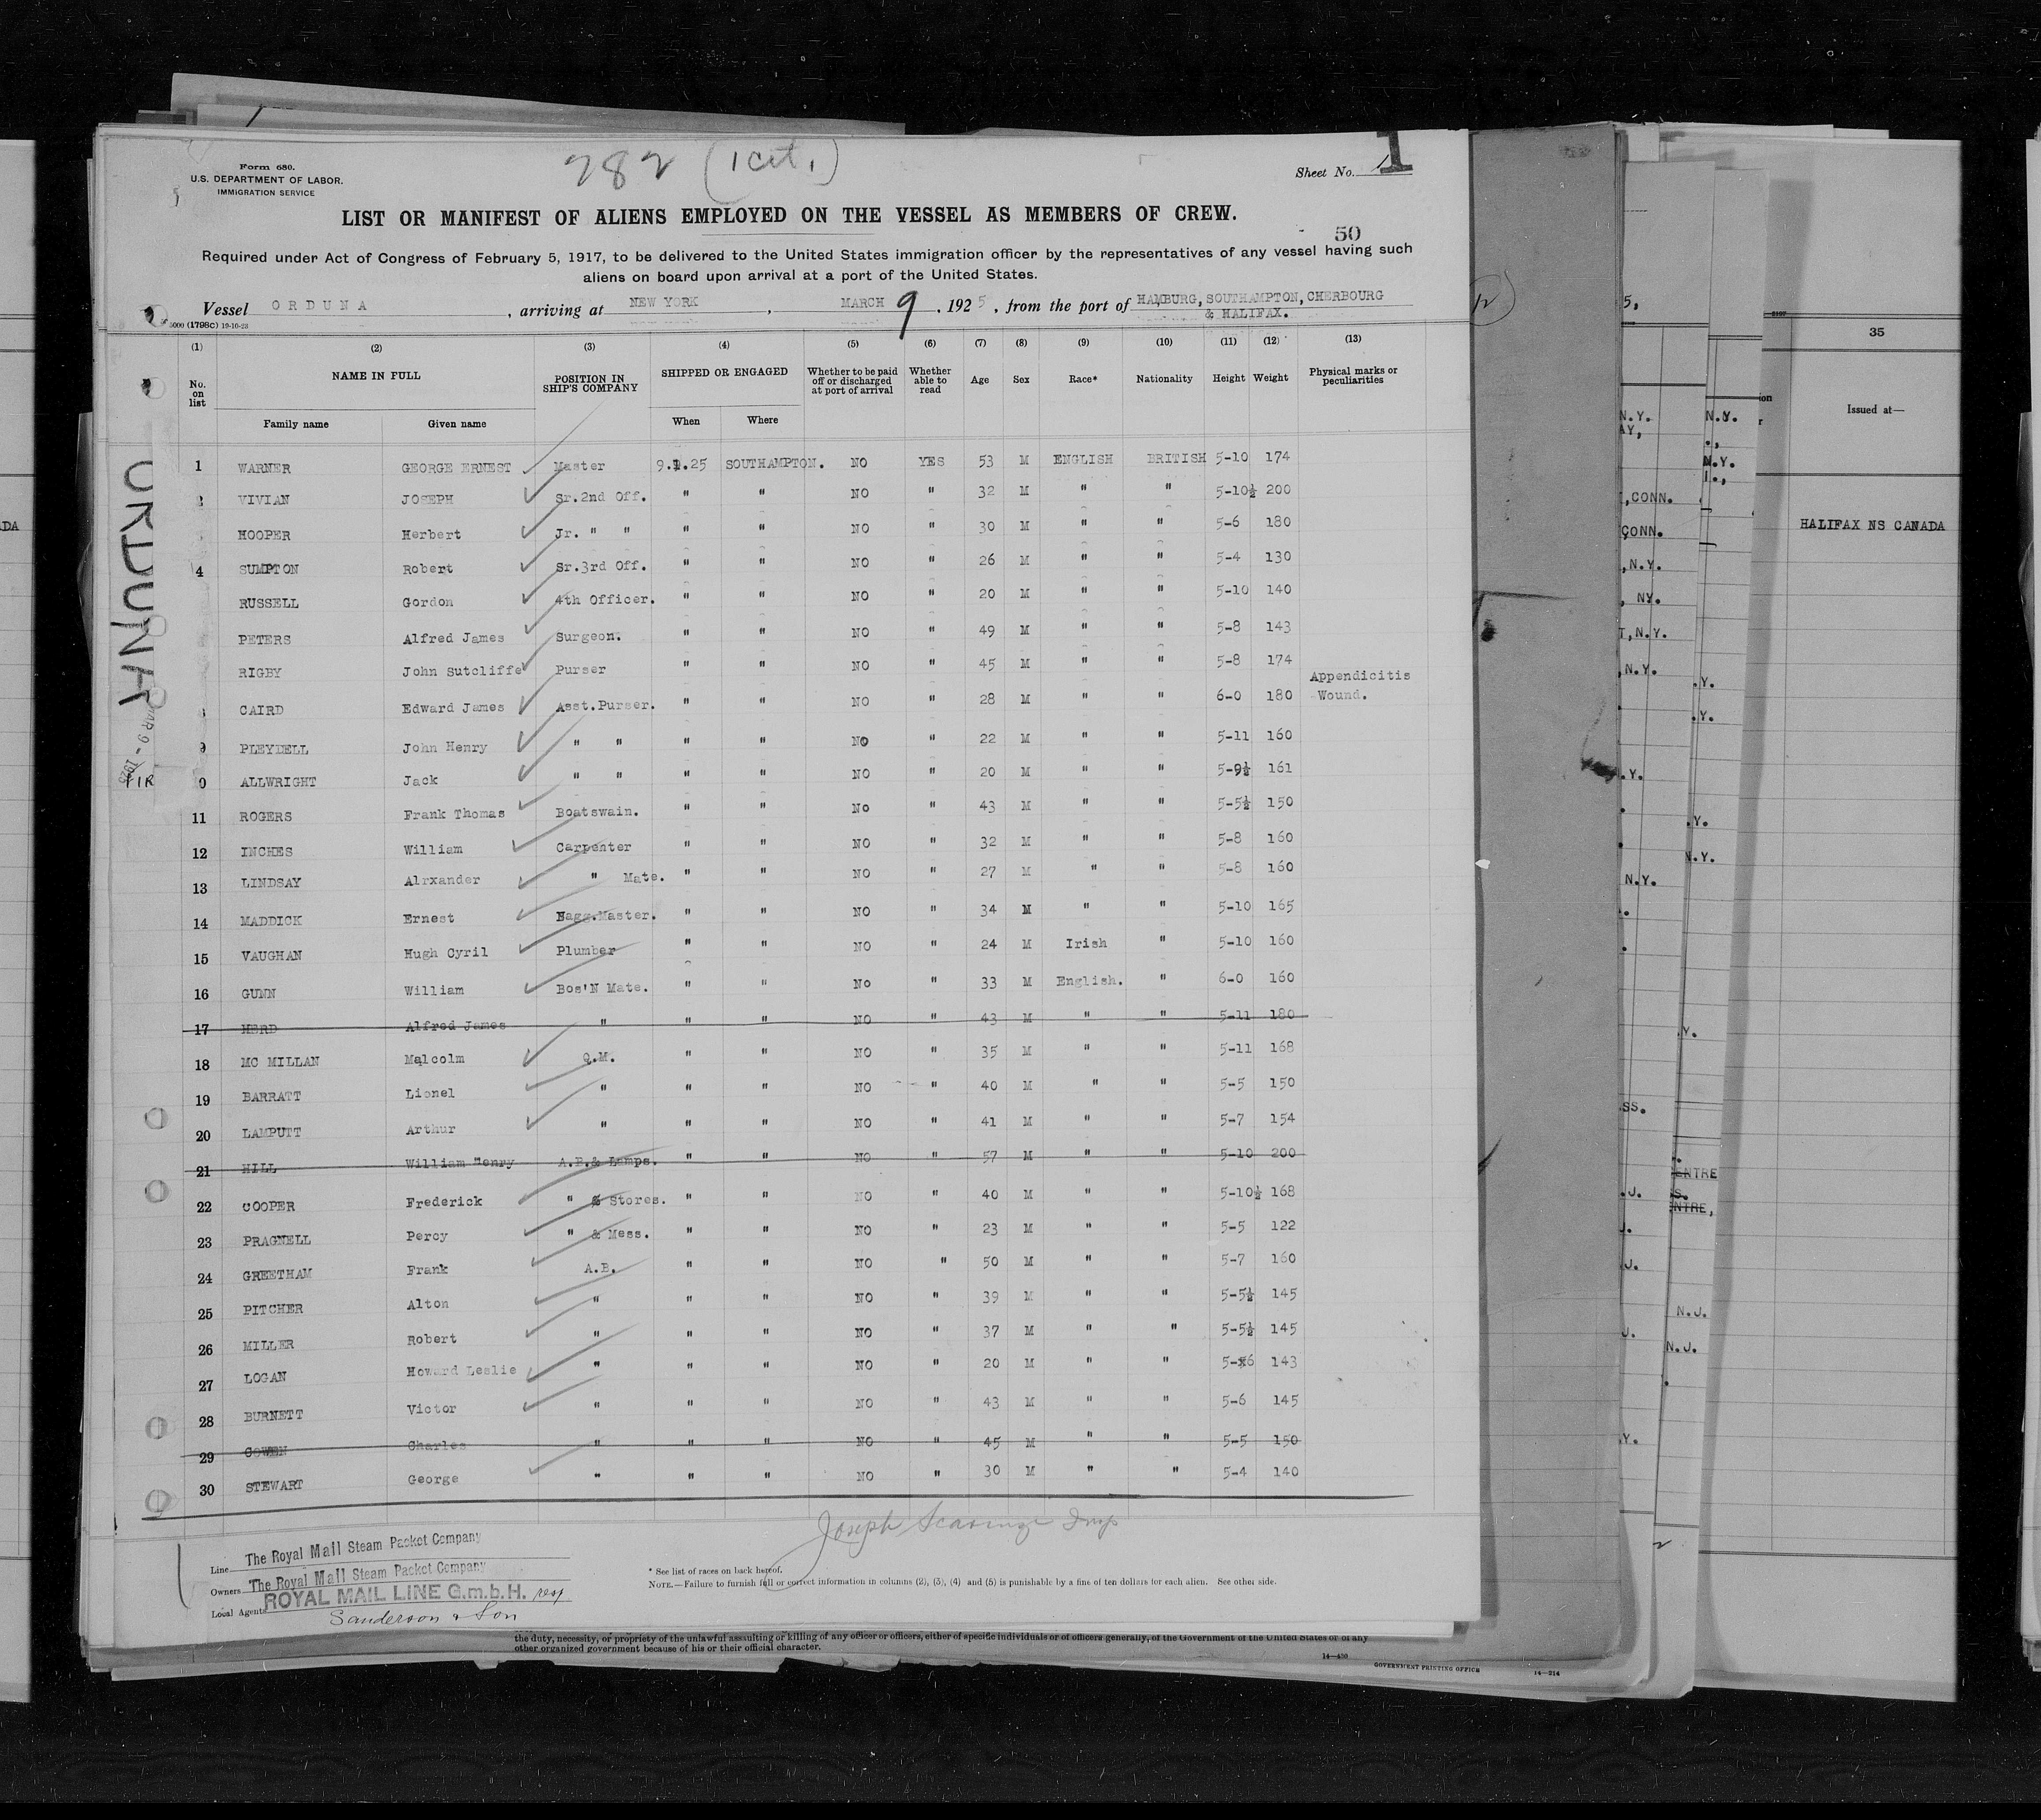 282 (1 cit.)
Form 680.
U.S. DEPARTMENT OF LABOR.
IMMIGRATION SERVICE
Sheet No. 1
LIST OR MANIFEST OF ALIENS EMPLOYED ON THE VESSEL AS MEMBERS OF CREW.
50
Required under Act of Congress of February 5, 1917, to be delivered to the United States immigration officer by the representatives of any vessel having such
aliens on board upon arrival at a port of the United States.
Vessel ORDUNA, arriving at NEW YORK, MARCH 9, 1925, from the port of HAMBURG, SOUTHAMPTON, CHERBOURG
& HALIFAX.
5000 (1798C) 19-10-23
(1) (2) (3) (4) (5) (6) (7) (8) (9) (10) (11) (12) (13)
No. on list NAME IN FULL POSITION IN SHIP'S COMPANY SHIPPED OR ENGAGED Whether to be paid off or discharged at port of arrival Whether able to read Age Sex Race* Nationality Height Weight Physical marks or peculiarities
Family name Given name When Where
1 WARNER GEORGE ERNEST Master 9.1.25 SOUTHAMPTON. NO YES 53 M ENGLISH BRITISH 5-10 174
VIVIAN JOSEPH Sr.2nd Off. " " NO " 32 M " " 5-10½ 200
HOOPER Herbert Jr. " " " " NO " 30 M " " 5-6 180
4 SUMPTON Robert Sr.3rd Off. " " NO " 26 M " " 5-4 130
RUSSELL Gordon 4th Officer. " " NO " 20 M " " 5-10 140
PETERS Alfred James Surgeon. " " NO " 49 M " " 5-8 143
RIGBY John Sutcliffe Purser " " NO " 45 M " " 5-8 174
CAIRD Edward James Asst.Purser. " " NO " 28 M " " 6-0 180 Appendicitis Wound.
9 PLEYDELL John Henry " " " " NO " 22 M " " 5-11 160
0 ALLWRIGHT Jack " " " " NO " 20 M " " 5-9½ 161
11 ROGERS Frank Thomas Boatswain. " " No " 43 M " " 5-5½ 150
12 INCHES William Carpenter " " NO " 32 M " " 5-8 160
13 LINDSAY Alrxander " Mate. " " NO " 27 M " " 5-8 160
14 MADDICK Ernest Bagg.Master. " " NO " 34 M " " 5-10 165
15 VAUGHAN Hugh Cyril Plumber " " NO " 24 M Irish " 5-10 160
16 GUNN William Bos'N Mate. " " No " 33 M English. " 6-0 160
17 HERD Alfred James " " " NO " 43 M " " 5-11 180
18 MC MILLAN Malcolm Q.M. " " NO " 35 M " " 5-11 168
19 BARRATT Lionel " " " NO " 40 M " " 5-5 150
20 LAMPUTT Arthur " " " NO " 41 M " " 5-7 154
21 HILL William Henry A.B.& Lamps. " " NO " 57 M " " 5-10 200
22 COOPER Frederick " & Stores. " " NO " 40 M " " 5-10½ 168
23 PRAGNELL Percy " & Mess. " " NO " 23 M " " 5-5 122
24 GREETHAM Frank A.B. " " NO " 50 M " " 5-7 160
25 PITCHER Alton " " " NO " 39 M " " 5-5½ 145
26 MILLER Robert " " " NO " 37 M " " 5-5½ 145
27 LOGAN Howard Leslie " " " NO " 20 M " " 5-6 143
28 BURNETT Victor " " " NO " 43 M " " 5-6 145
29 COWEN Charles " " " NO " 45 M " " 5-5 150
30 STEWART George " " " NO " 30 M " " 5-4 140
ORDUNA
MAR 9 - 1925
Joseph
Line The Royal Mail Steam Packet Company
Owners The Royal Mail Steam Packet Company
ROYAL MAIL LINE G.m.b.H.
Local Agents Sanderson & Son
* See list of races on back hereof.
NOTE.—Failure to furnish full or correct information in columns (2), (3), (4) and (5) is punishable by a fine of ten dollars for each alien. See other side.
the duty, necessity, or propriety of the unlawful assaulting or killing of any officer or officers, either of specific individuals or of officers generally, of the Government of the United States or of any
other organized government because of his or their official character.
14—430
GOVERNMENT PRINTING OFFICE
14—314
35
Issued at—
HALIFAX NS CANADA
N.Y.
N.Y.
N.Y.
CONN.
CONN.
N.Y.
NY.
N.Y.
N.Y.
N.Y.
N.Y.
N.J.
N.J.